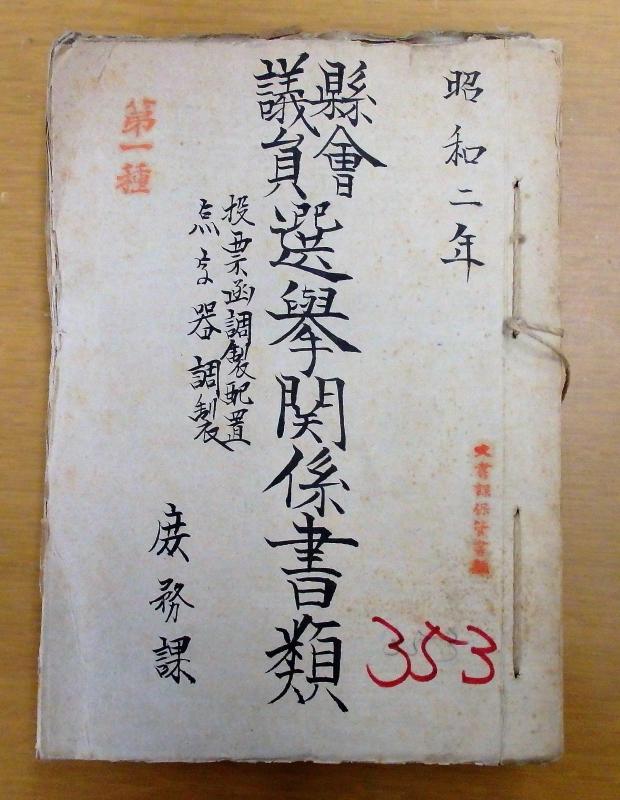 昭和二年
文書課保管書類
353
縣會
議員
選擧関係書類
投票函調製配置
点字器調製
第一種
庶務課